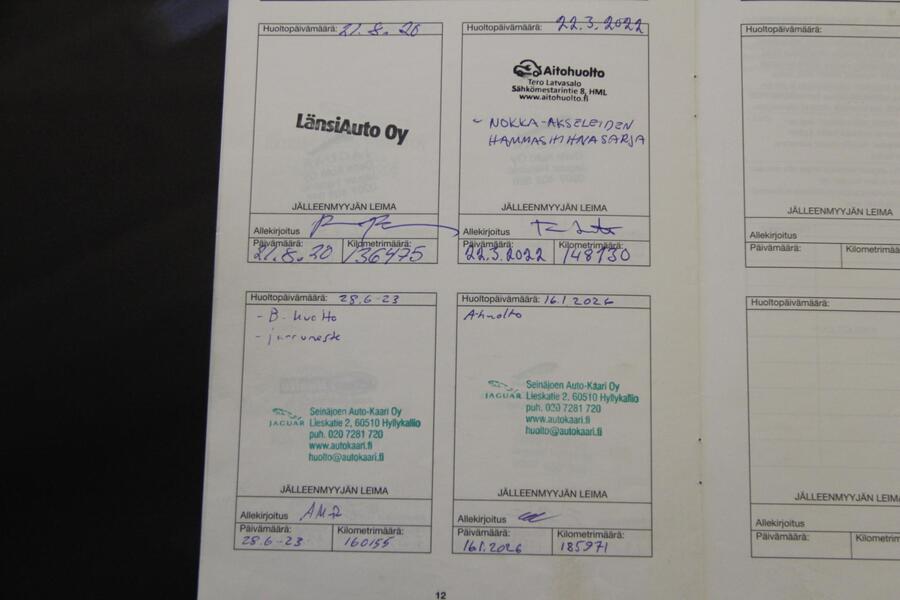 Huoltopäivämäärä: 21.8.20
LänsiAuto Oy
JÄLLEENMYYJÄN LEIMA
Allekirjoitus
Päivämäärä: Kilometrimäärä:
21.8.20 136475
Huoltopäivämäärä: 22.3.2022
Aitohuolto
Tero Latvasalo
Sähkömestarintie 8, HML
www.aitohuolto.fi
- NOKKA-AKSELEIDEN
HAMMASHIHNASARJA
JÄLLEENMYYJÄN LEIMA
Allekirjoitus
Päivämäärä: Kilometrimäärä:
22.3.2022 148130
Huoltopäivämäärä:
JÄLLEENMYYJÄN LEIMA
Allekirjoitus
Päivämäärä: Kilometrimäärä
Huoltopäivämäärä: 28.6-23
- B-huolto
- jarruneste
JAGUAR
Seinäjoen Auto-Kaari Oy
Lieskatie 2, 60510 Hyllykallio
puh. 020 7281 720
www.autokaari.fi
huolto@autokaari.fi
JÄLLEENMYYJÄN LEIMA
Allekirjoitus
Päivämäärä: Kilometrimäärä:
28.6-23 160155
Huoltopäivämäärä: 16.1.2026
A-huolto
JAGUAR
Seinäjoen Auto-Kaari Oy
Lieskatie 2, 60510 Hyllykallio
puh. 020 7281 720
www.autokaari.fi
huolto@autokaari.fi
JÄLLEENMYYJÄN LEIMA
Allekirjoitus
Päivämäärä: Kilometrimäärä:
16.1.2026 185971
Huoltopäivämäärä:
JÄLLEENMYYJÄN LEIMA
Allekirjoitus
Päivämäärä:
12